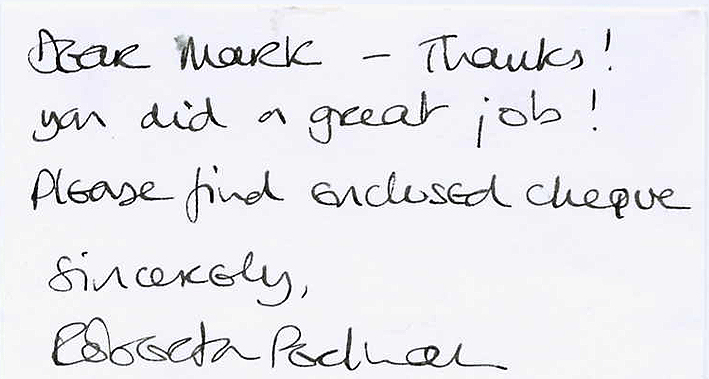 Dear Mark - Thanks!
you did a great job!
Please find enclosed cheque
Sincerely,
Roberta